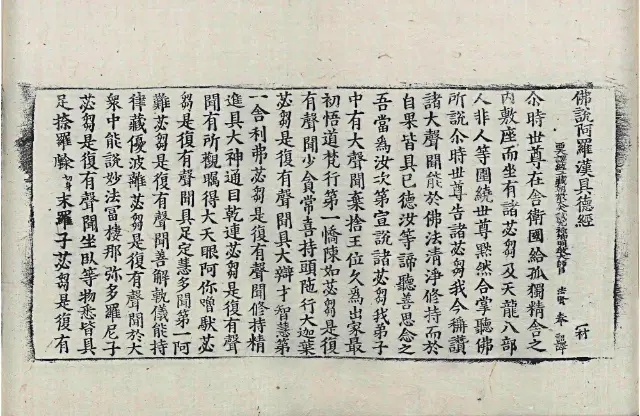 佛說阿羅漢具德經
西天譯經三藏朝散大夫試鴻臚少卿明教大師臣法賢奉 詔譯
尒時世尊在舍衛國給孤獨精舍之
內敷座而坐有諸苾芻及天龍八部
人非人等圍繞世尊黙然合掌聽佛
所說尒時世尊告諸苾芻我今稱讚
諸大聲聞能於佛法清淨修持而於
自果皆具已德汝等諦聽善思念之
吾當為汝次第宣說諸苾芻我弟子
中有大聲聞棄捨王位久為出家最
初悟道梵行第一憍陳如苾芻是復
有聲聞少貪常喜持頭陁行大迦葉
苾芻是復有聲聞具大辯才智慧第
一舍利弗苾芻是復有聲聞修持精
進具大神通目乾連苾芻是復有聲
聞有所觀矚得大天眼阿你嚕馱苾
芻是復有聲聞具足定慧多聞第一阿
難苾芻是復有聲聞善解軌儀能持
律藏優波離苾芻是復有聲聞於大
衆中能說妙法富樓那弥多羅尼子
苾芻是復有聲聞坐臥等物悉皆具
足捺羅嚩末羅子苾芻是復有